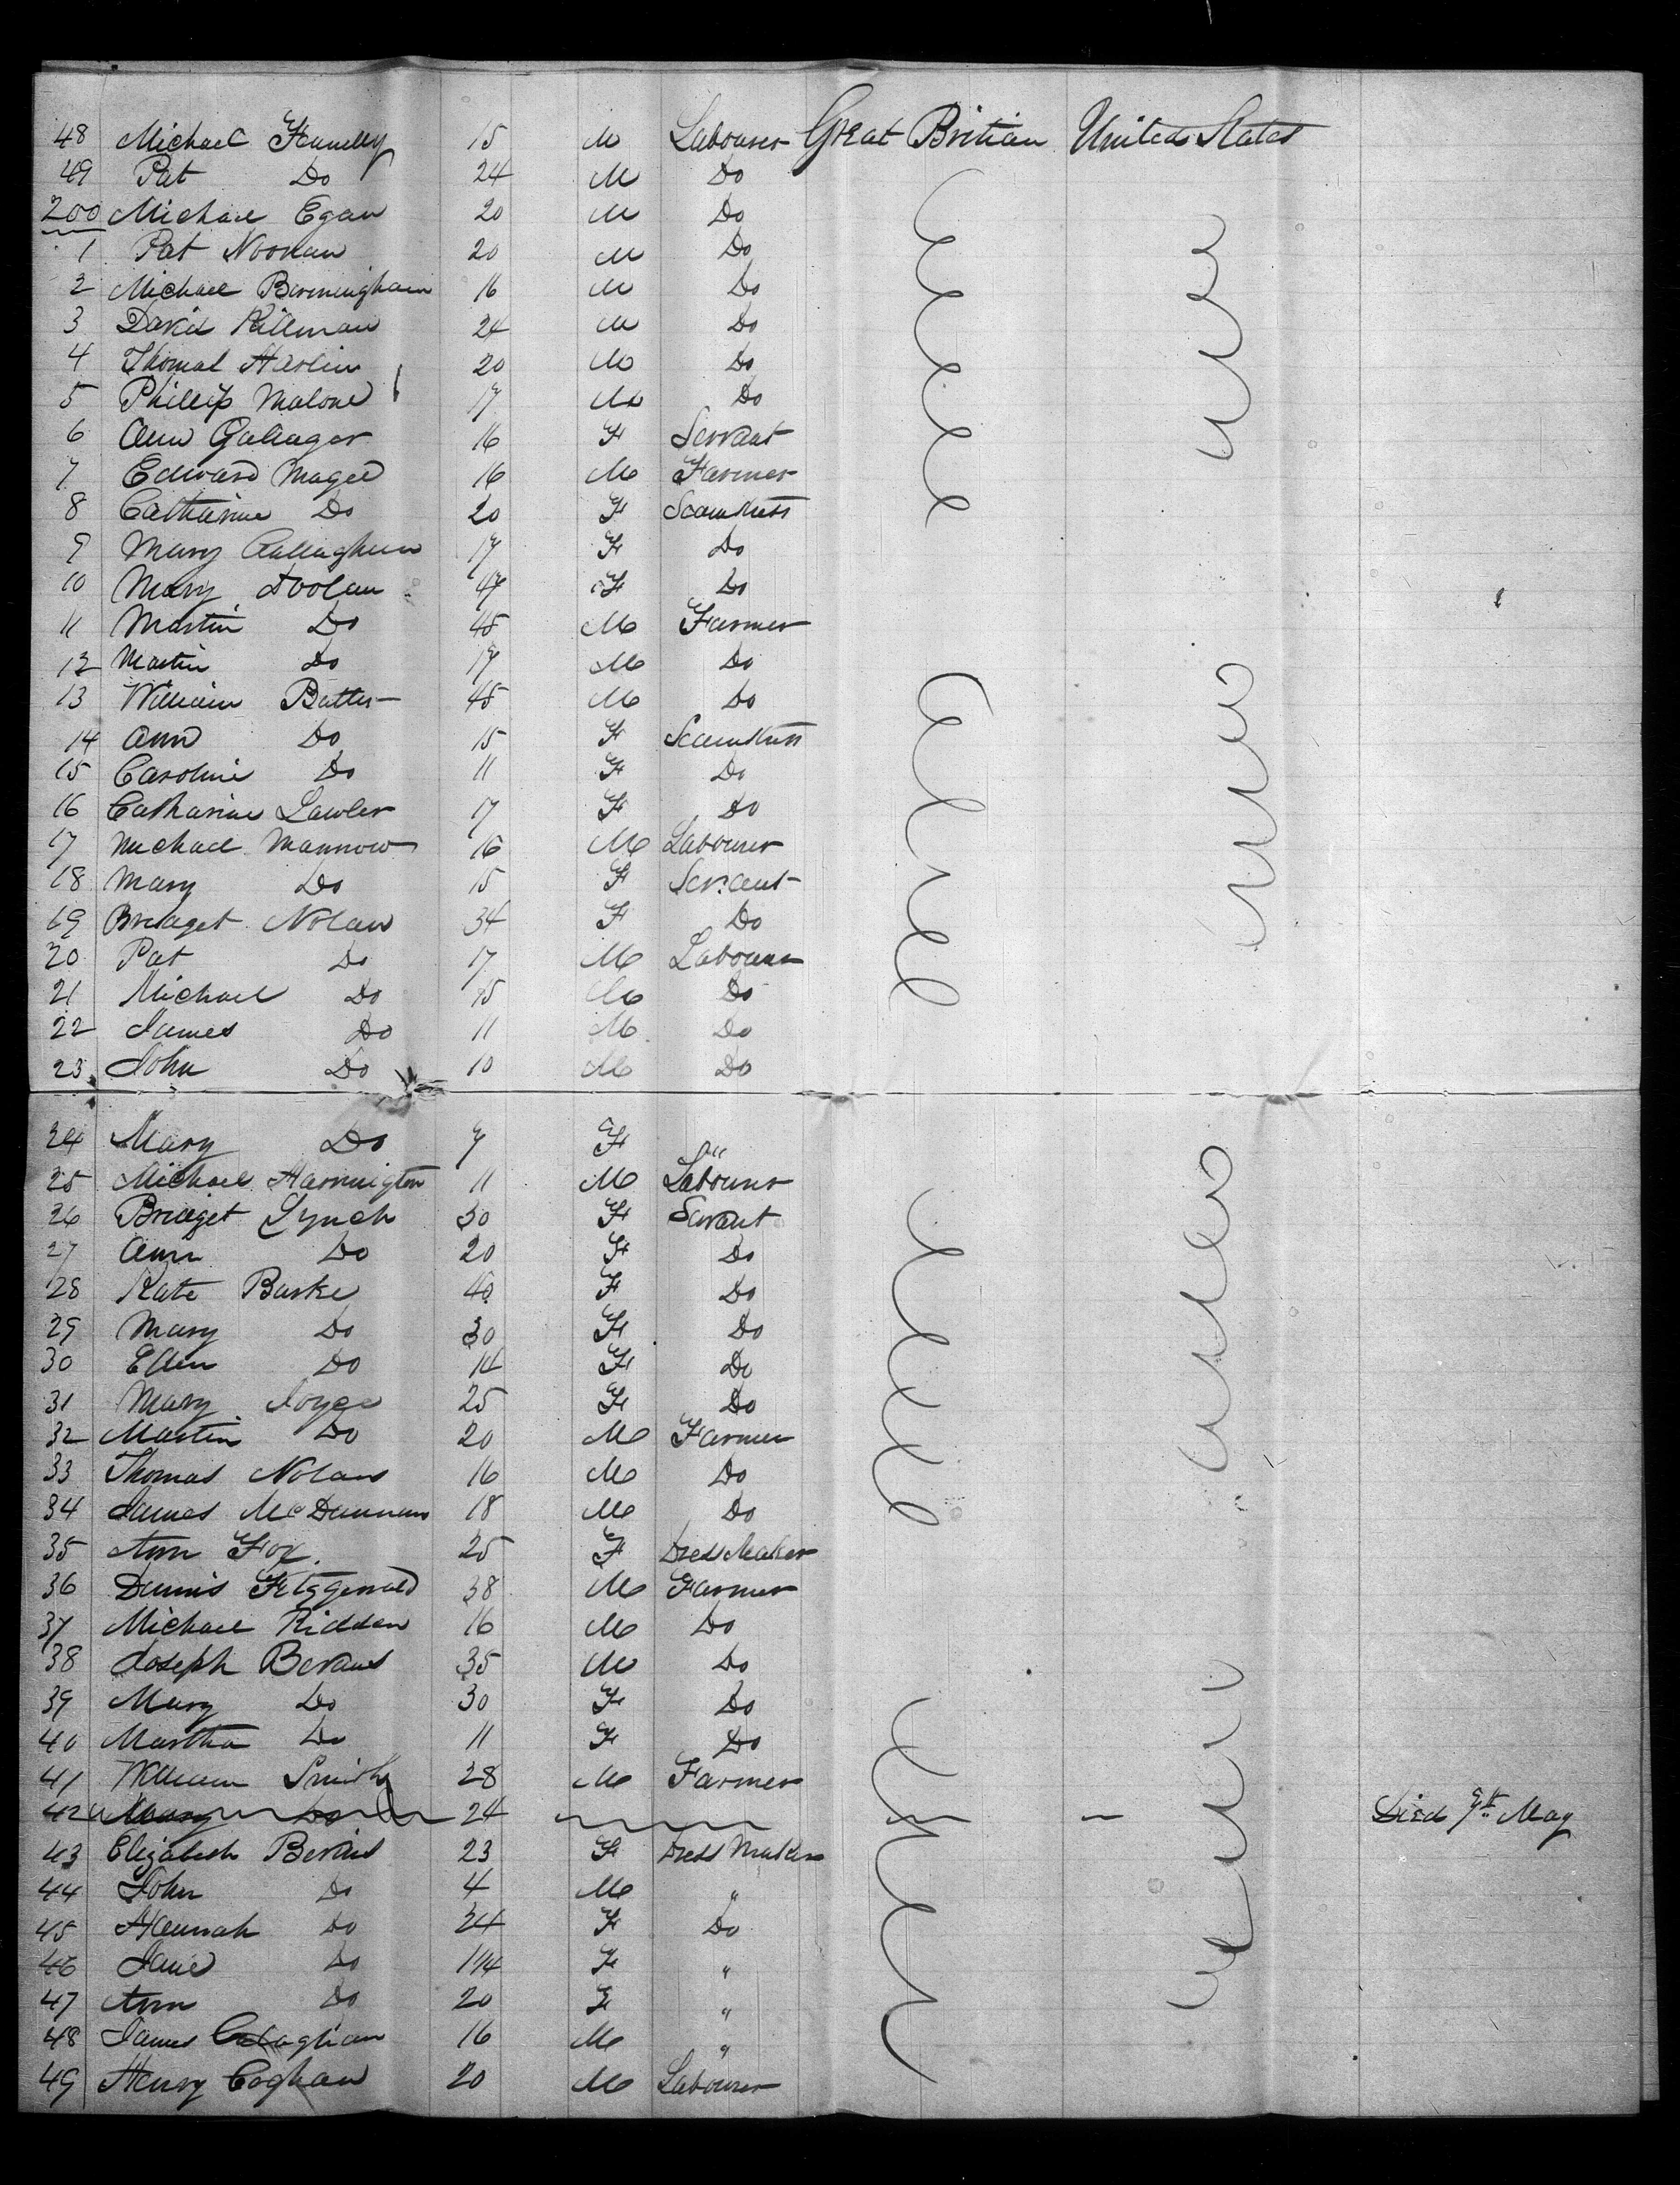 48 Michael Fennelly 15 M Labourer Great Britian United States
49 Pat Do 24 M Do
200 Michael Egan 20 M Do
1 Pat Noonan 20 M Do
2 Michael Bermingham 16 M Do
3 David Killman 24 M Do
4 Thomas Harlin 20 M Do
5 Phillip Malone 17 M Do
6 Ann Gallagar 16 F Servant
7 Edward Magee 16 M Farmer
8 Catharine Do 20 F Seamstress
9 Mary Callaghan 17 F Do
10 Mary Doolan 47 F Do
11 Martin Do 45 M Farmer
12 Martin Do 17 M Do
13 William Butler 45 M Do
14 Ann Do 15 F Seamstress
15 Caroline Do 11 F Do
16 Catharine Lawler 17 F Do
17 Michael Mannow 16 M Labourer
18 Mary Do 15 F Servant
19 Bridget Nolan 34 F Do
20 Pat Do 17 M Labourer
21 Michael Do 15 M Do
22 James Do 11 M Do
23 John Do 10 M Do
24 Mary Do 7 F "
25 Michael Harrington 11 M Labourer
26 Bridget Lynch 30 F Servant
27 Ann Do 20 F Do
28 Kate Burke 40 F Do
29 Mary Do 30 F Do
30 Ellen Do 14 F Do
31 Mary Joyce 25 F Do
32 Martin Do 20 M Farmer
33 Thomas Nolan 16 M Do
34 James 18 M Do
35 Ann Fox 25 F Dress Maker
36 Dennis Fitzgerald 38 M Farmer
37 Michael Ridden 16 M Do
38 Joseph Bevans 35 M Do
39 Mary Do 30 F Do
40 Martha Do 11 F Do
41 William Smith 28 M Farmer
42 Mary Do 24 — Died 7th May
43 Elizabeth Bevans 23 F Dress Maker
44 John Do 4 M "
45 Hannah Do 24 F Do
46 Jane Do 1 1/4 F "
47 Ann Do 20 F "
48 James Calaghan 16 M "
49 Henry Coghan 20 M Labourer